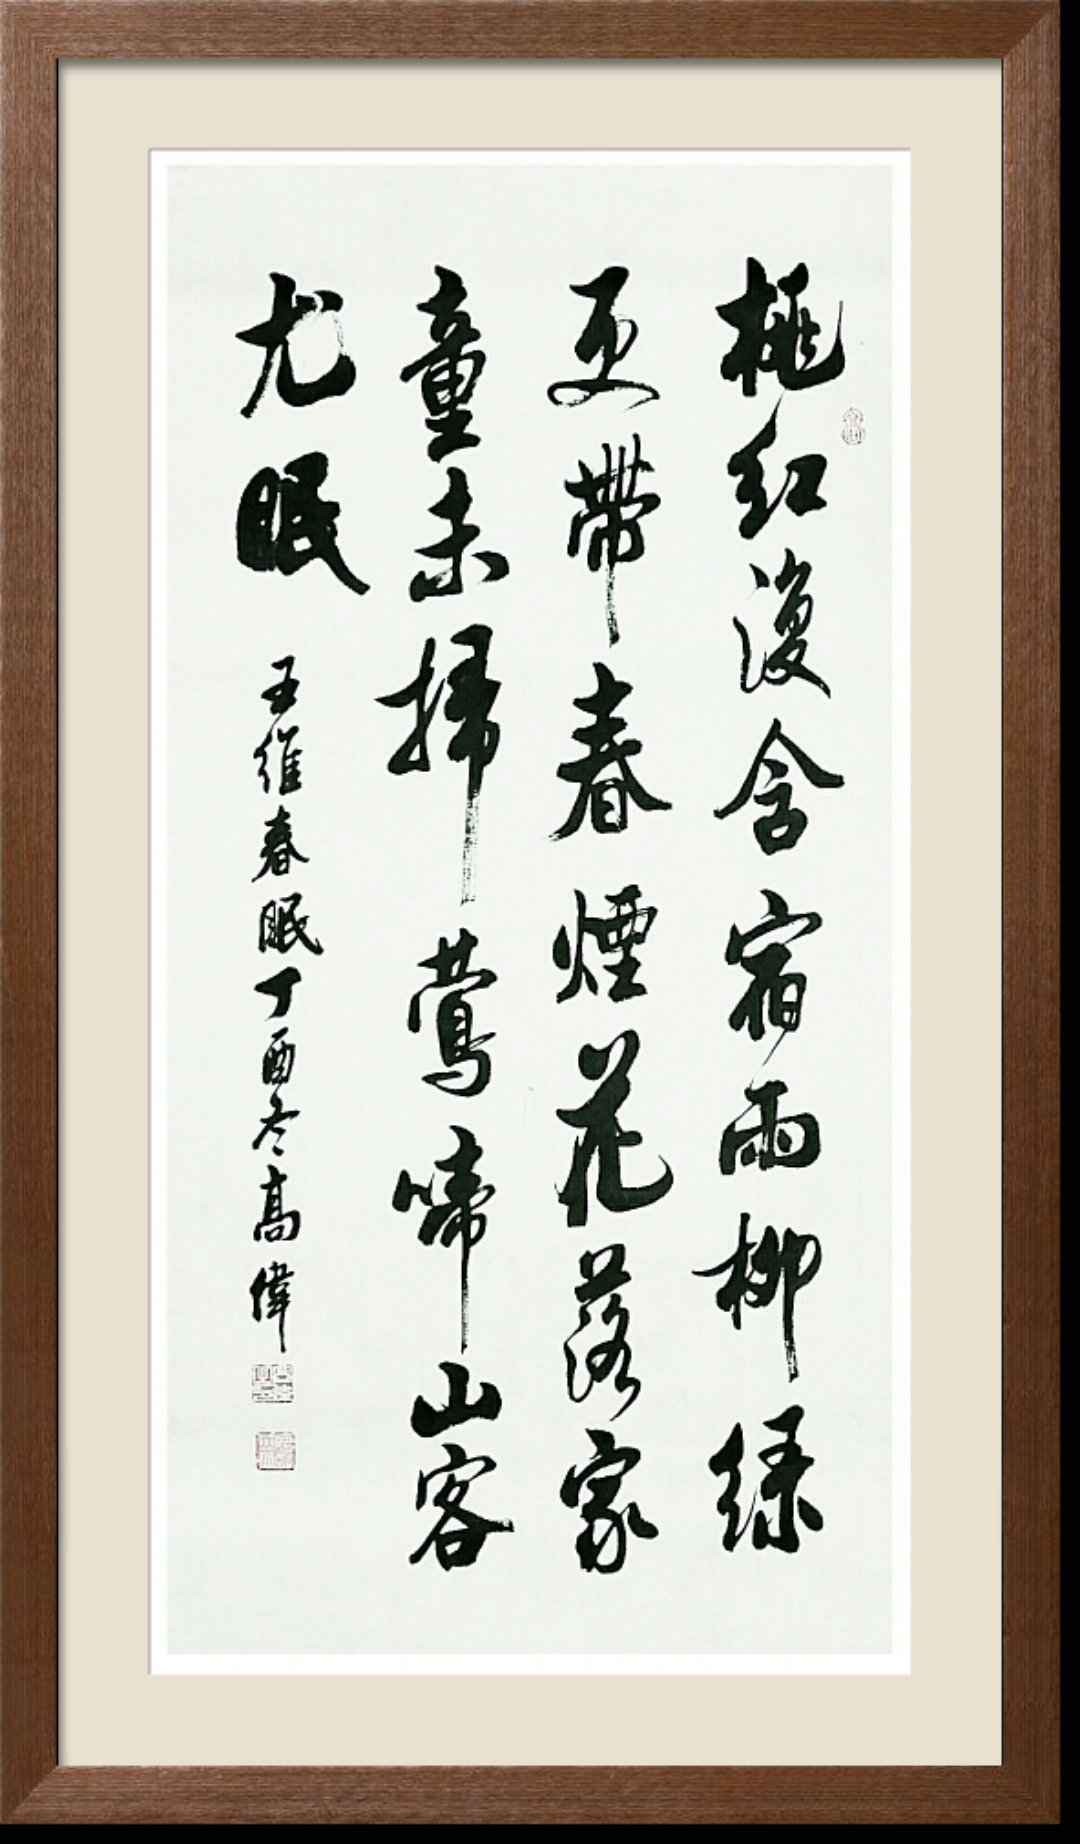 桃红復含宿雨柳緑
更帶春煙花落家
童未掃鶯啼山客
尤眠
王維春眠丁酉冬高偉